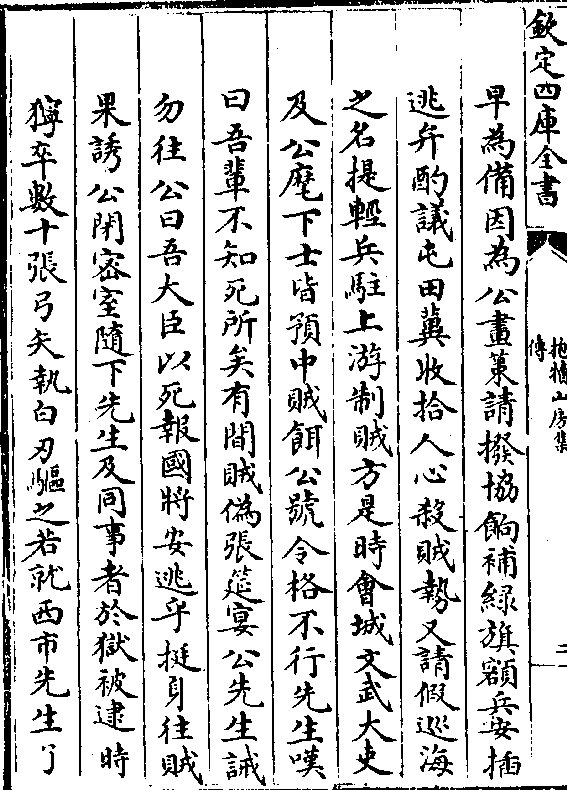 欽定四庫全書
抱犢山房集
傳
二
早為備因為公畫策請撥協餉補緑旗額兵安插
逃弁酌議屯田冀收拾人心殺賊勢又請假巡海
之名提輕兵駐上游制賊方是時會城文武大吏
及公麾下士皆預中賊餌公號令格不行先生嘆
曰吾輩不知死所矣有間賊偽張筵宴公先生誡
勿往公曰吾大臣以死報國將安逃乎挺身往賊
果誘公閉密室隨下先生及同事者於獄被逮時
獰卒數十張弓矢執白刃驅之若就西市先生了